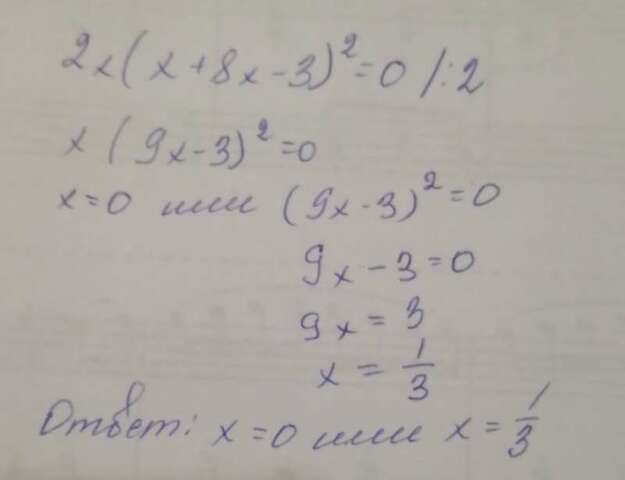 2x(x+8x-3)²=0 /:2
x(9x-3)²=0
x=0 или (9x-3)²=0
9x-3=0
9x=3
x=1/3
Ответ: x=0 или x=1/3